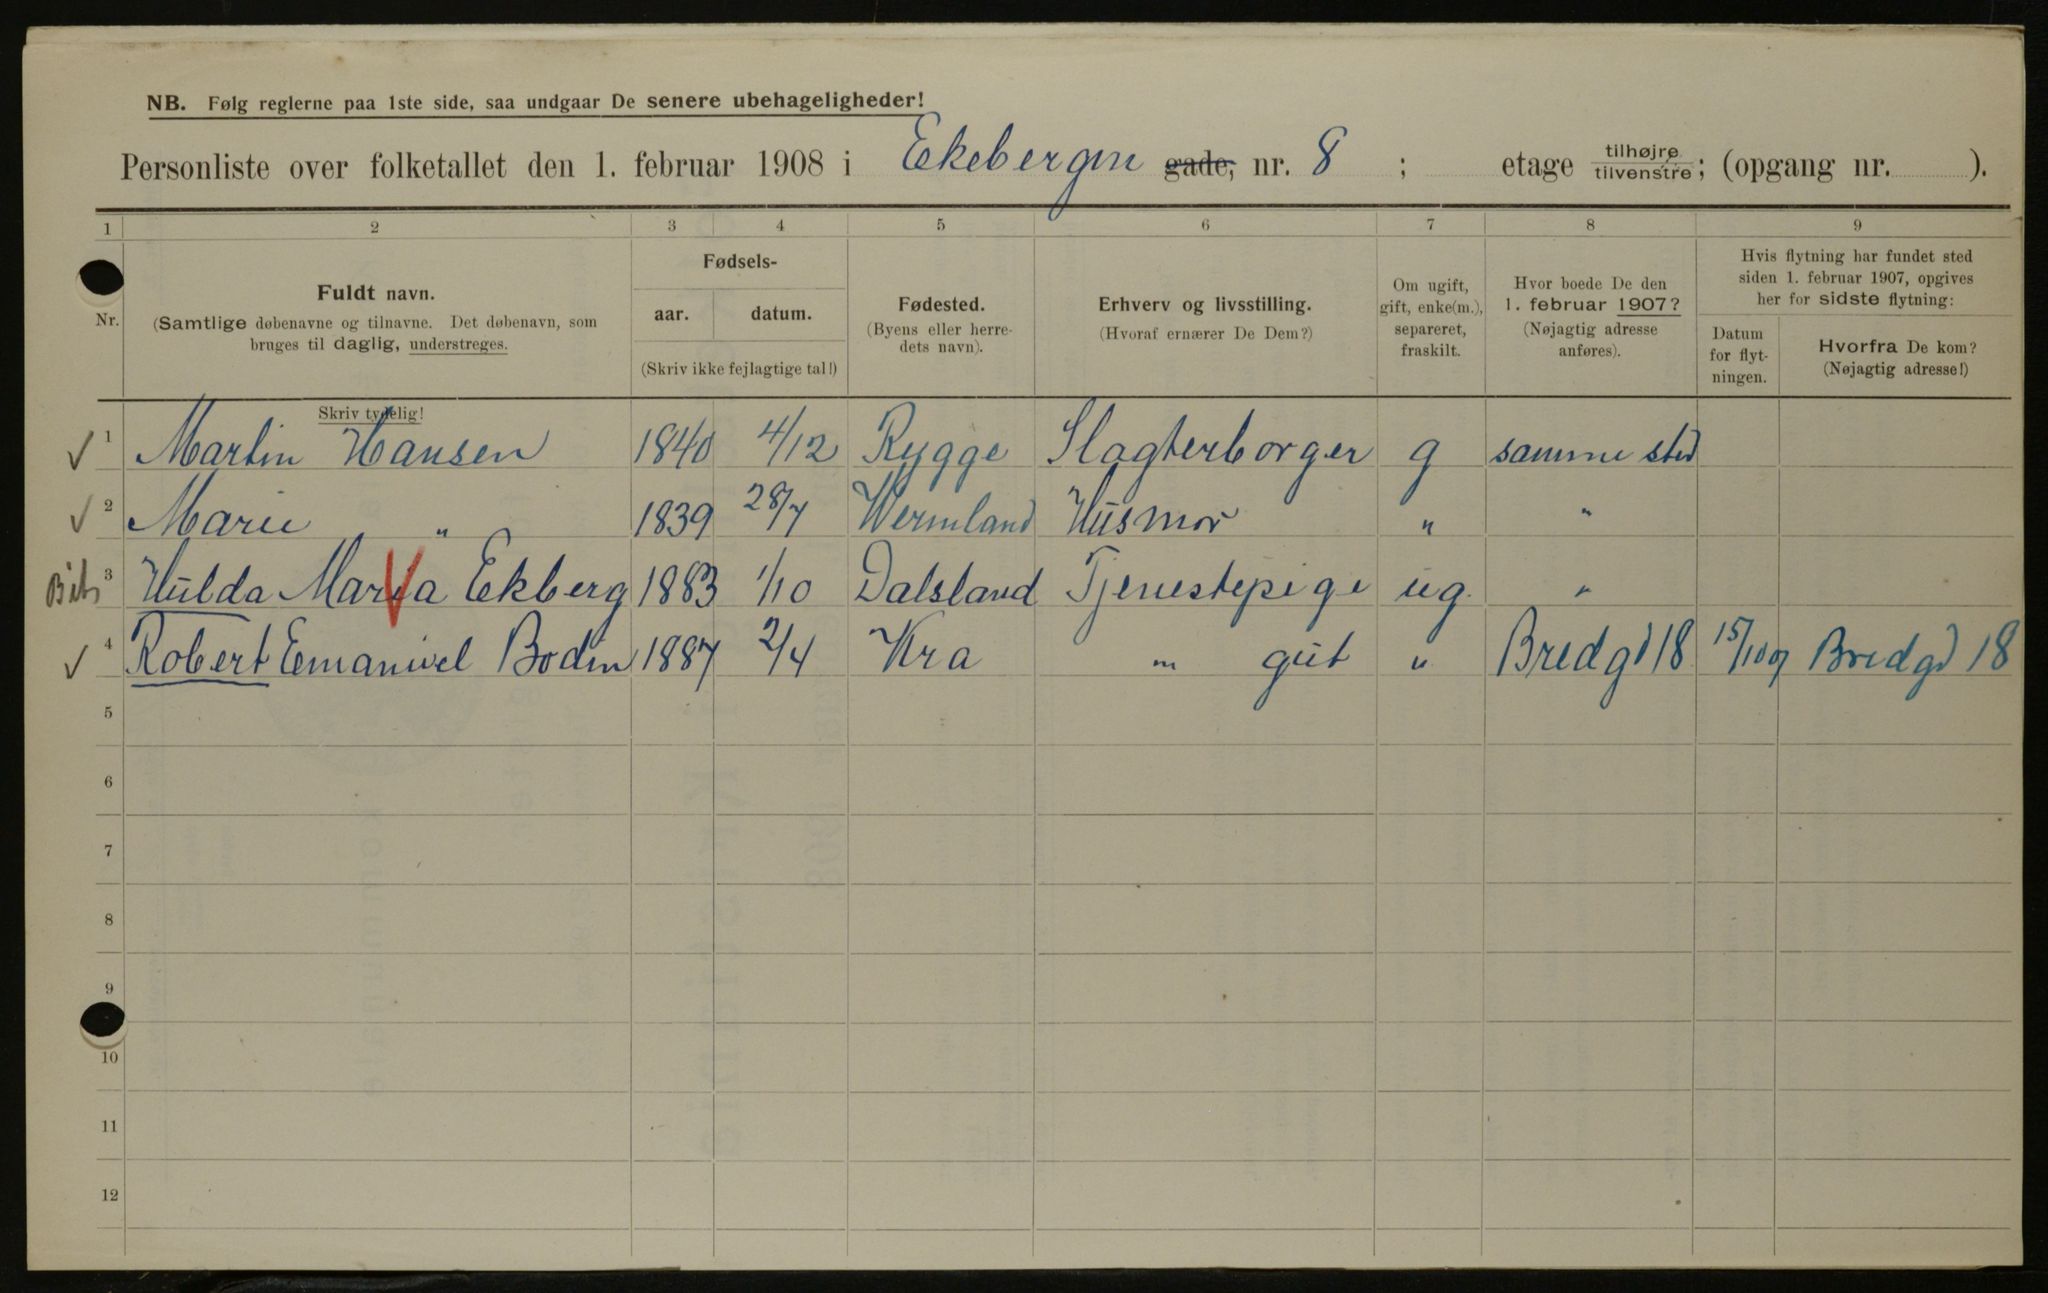 NB. Følg reglerne paa 1ste side, saa undgaar De senere ubehageligheder!
Personliste over folketallet den 1. februar 1908 i Ekebergvn gade, nr. 8 ; etage tilhøjre tilvenstre; (opgang nr. ).
1 2 3 4 5 6 7 8 9
Nr.
Fuldt navn.
(Samtlige døbenavne og tilnavne. Det døbenavn, som
bruges til daglig, understreges.
Skriv tydelig!
Fødsels-
aar. datum.
(Skriv ikke fejlagtige tal!)
Fødested.
(Byens eller herre-
dets navn).
Erhverv og livsstilling.
(Hvoraf ernærer De Dem?)
Om ugift,
gift, enke(m.),
separeret,
fraskilt.
Hvor boede De den
1. februar 1907?
(Nøjagtig adresse
anføres).
Hvis flytning har fundet sted
siden 1. februar 1907, opgives
her for sidste flytning:
Datum
for flyt-
ningen.
Hvorfra De kom?
(Nøjagtig adresse!)
1 Martin Hansen 1840 4/12 Rygge Slagterborger g samme sted
2 Marie " 1839 28/7 Wermland Husmor " "
3 Hulda Maria Ekberg 1883 1/10 Dalsland Tjenestepige ug. "
4 Robert Emanuel Bodin 1887 2/4 Kra " gut " Bredgd 18 15/10 07 Bredgd 18
5
6
7
8
9
10
11
12